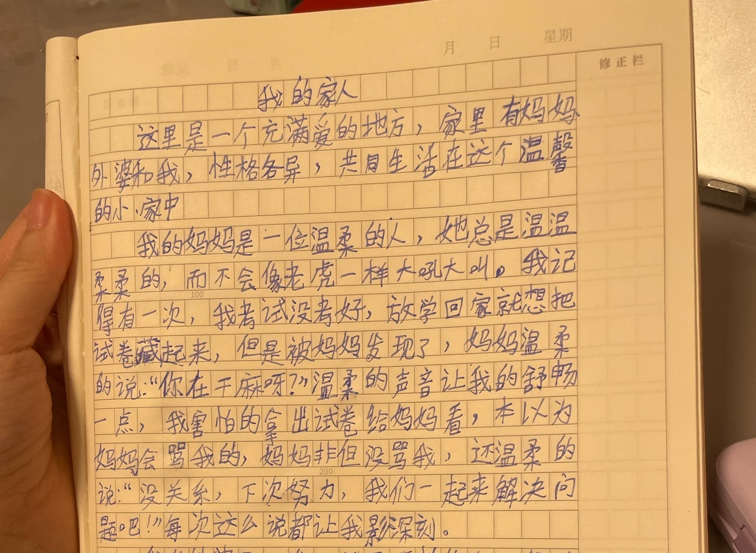 月 日 星期
修正栏
我的家人
这里是一个充满爱的地方，家里有妈妈
外婆和我，性格各异，共同生活在这个温馨
的小家中
我的妈妈是一位温柔的人，她总是温温
柔柔的，而不会像老虎一样大吼大叫。我记
得有一次，我考试没考好，放学回家就想把
100
试卷藏起来，但是被妈妈发现了，妈妈温柔
的说：“你在干麻呀？”温柔的声音让我的舒畅
一点，我害怕的拿出试卷给妈妈看，本以为
妈妈会骂我的，妈妈非但没骂我，还温柔的
200
说：“没关系，下次努力，我们一起来解决问
题吧！”每次这么说都让我影深刻。